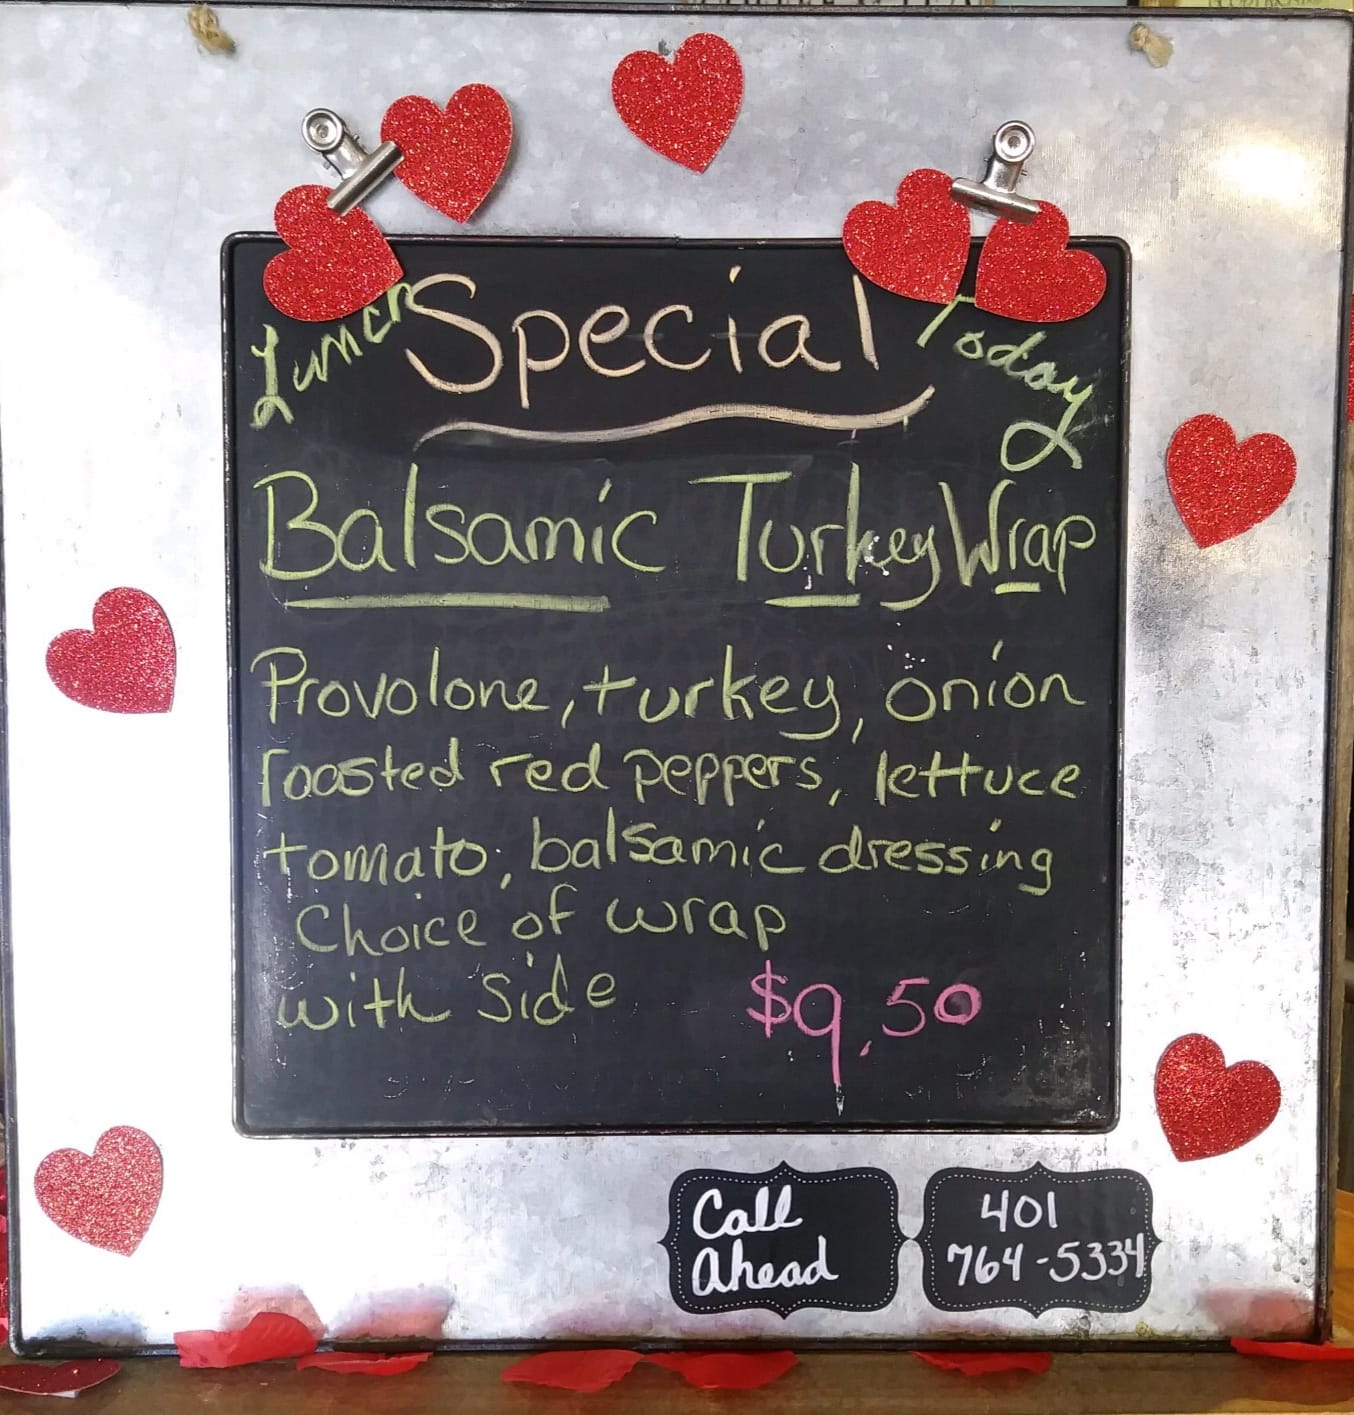 Lunch Special Today
Balsamic Turkey Wrap
Provolone, turkey, onion
roasted red peppers, lettuce
tomato, balsamic dressing
Choice of wrap
with side $9.50
Call
Ahead
401
764-5334